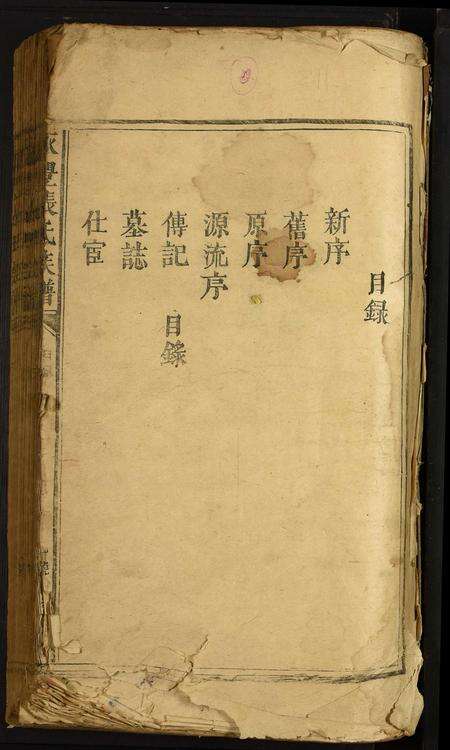 目録
新序
舊序
原序
源流序
傳記
目錄
墓誌
仕宦
張氏族譜